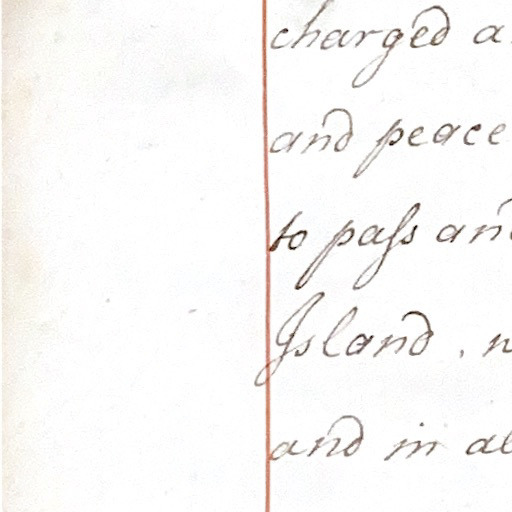 charged a
and peace
to paſs and
Island, n
and in al